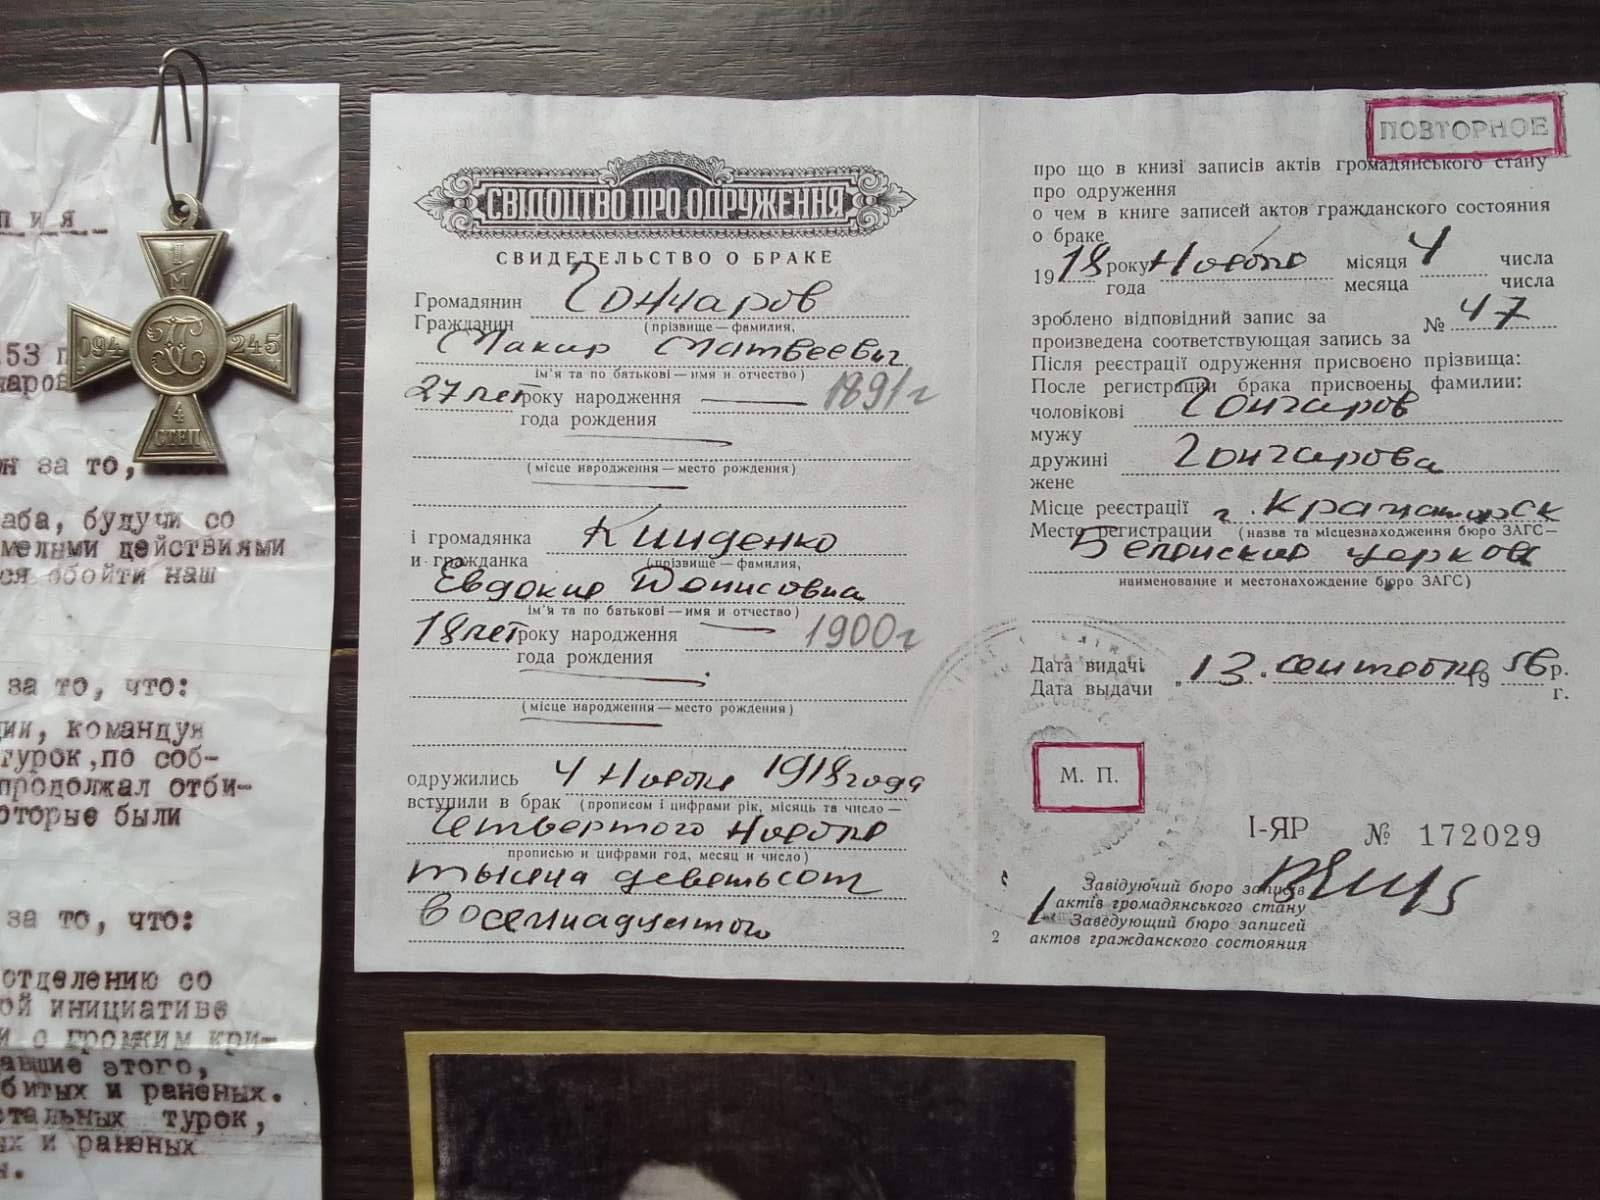 пия
153 п
чаров
н за то,
аба, будучи со
мелыми действиями
ся обойти наш
за то, что:
ции, командуя
турок,по соб-
продолжал отби-
оторые были
за то, что:
отделению со
ой инициативе
и с громким кри-
авшие этого,
битых и раненых.
стальных турок,
ых и раненых
н.
1/М
094 245
4
СТЕП
СВІДОЦТВО ПРО ОДРУЖЕННЯ
СВИДЕТЕЛЬСТВО О БРАКЕ
Громадянин Гончаров
Гражданин (прізвище — фамилия,
Макар Матвеевич
ім'я та по батькові — имя и отчество)
27 лет року народження 1891 г
года рождения
(місце народження — место рождения)
і громадянка Кииденко
и гражданка (прізвище — фамилия,
Евдокия Донисовна
ім'я та по батькові — имя и отчество)
18 лет року народження 1900 г
года рождения
(місце народження — место рождения)
одружились 4 Ноября 1918 года
вступили в брак (прописом і цифрами рік, місяць та число —
Четвертого Ноября
прописью и цифрами год, месяц и число)
тысяча девятьсот
восемнадцатого
ПОВТОРНОЕ
про що в книзі записів актів громадянського стану
про одруження
о чем в книге записей актов гражданского состояния
о браке
1918 року Ноября місяця 4 числа
года месяца числа
зроблено відповідний запис за
произведена соответствующая запись за № 47
Після реєстрації одруження присвоєно прізвища:
После регистрации брака присвоены фамилии:
чоловікові Гончаров
мужу
дружині Гончарова
жене
Місце реєстрації г. Краматорск
Место регистрации (назва та місцезнаходження бюро ЗАГС —
церковь
наименование и местонахождение бюро ЗАГС)
Дата видачі „13" сентября 1956 р.
Дата выдачи г.
М. П.
І-ЯР № 172029
Завідуючий бюро записів
актів громадянського стану
Заведующий бюро записей
2 актов гражданского состояния